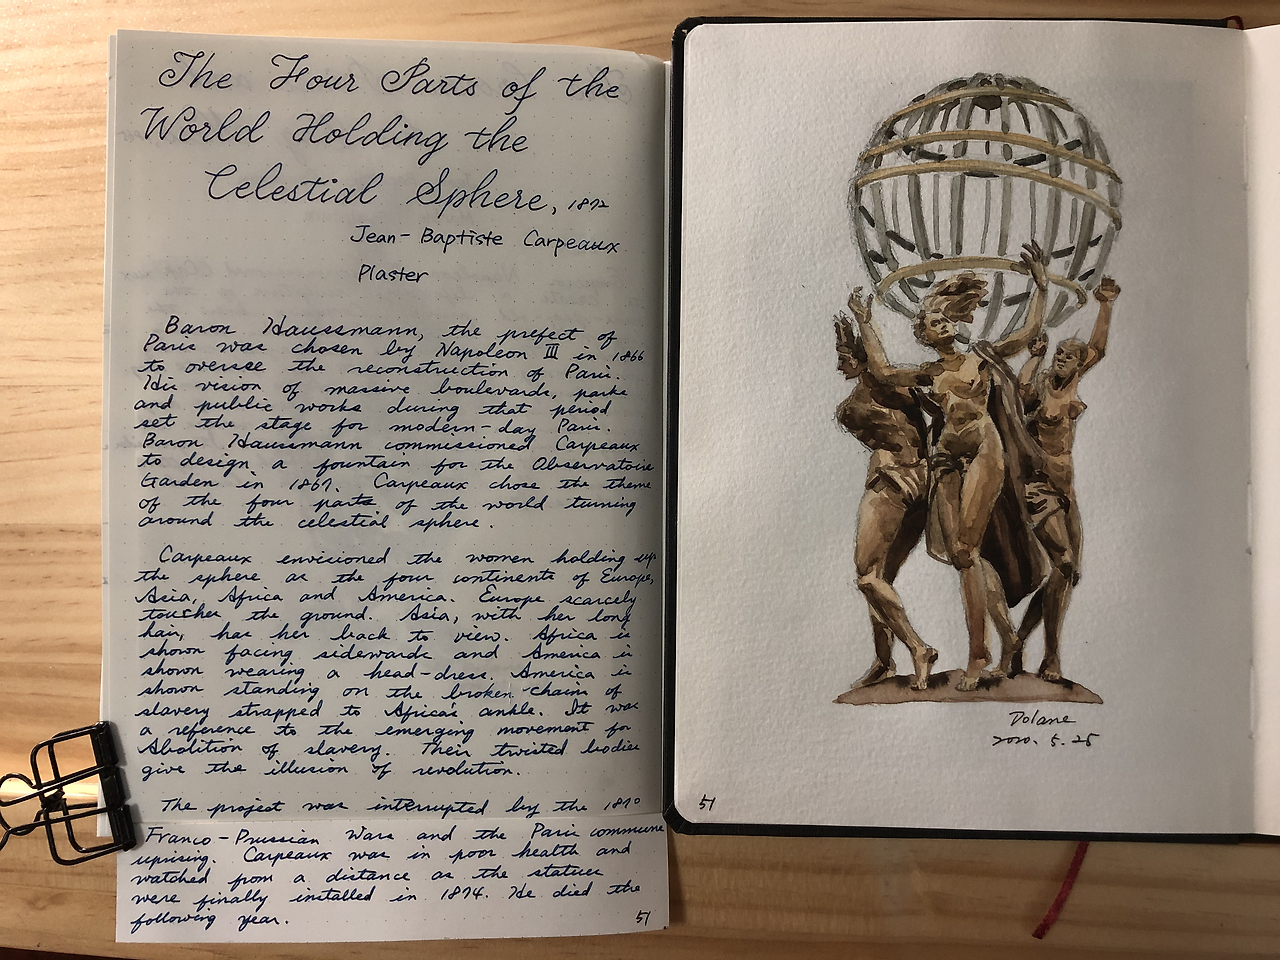 The Four Parts of the
World Holding the
Celestial Sphere, 1872
Jean-Baptiste Carpeaux
Plaster
Baron Haussmann, the prefect of
Paris was chosen by Napoleon III in 1866
to oversee the reconstruction of Paris.
His vision of massive boulevards, parks
and public works during that period
set the stage for modern-day Paris.
Baron Haussmann commissioned Carpeaux
to design a fountain for the Observatoire
Garden in 1867. Carpeaux chose the theme
of the four parts of the world turning
around the celestial sphere.
Carpeaux envisioned the women holding up
the sphere as the four continents of Europe,
Asia, Africa and America. Europe scarcely
touches the ground. Asia, with her long
hair, has her back to view. Africa is
shown facing sidewards and America is
shown wearing a head-dress. America is
shown standing on the broken chain of
slavery strapped to Africa's ankle. It was
a reference to the emerging movement for
Abolition of slavery. Their twisted bodies
give the illusion of revolution.
The project was interrupted by the 1870
Franco-Prussian Wars and the Paris commune
uprising. Carpeaux was in poor health and
watched from a distance as the statues
were finally installed in 1874. He died the
following year.
51
Dolane
2020. 5. 25
51